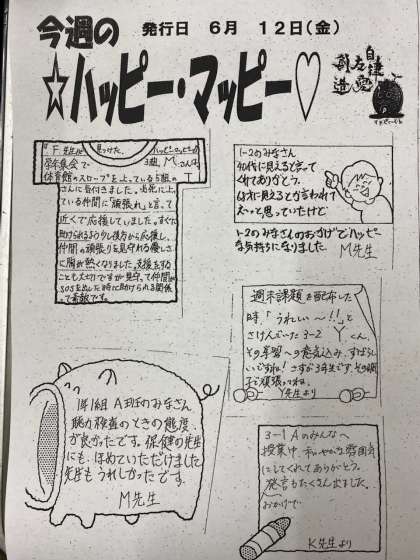 今週の
発行日 6月 12日(金)
☆ハッピー・マッピー♡
自律
友愛
創造
F先生が見つけた、ハッピーマッピー
卒アル集会で 3組、Mさんは、
体育館のスロープを上っている5組のT
さんに気付きました。必死に上っ
ている仲間に「頑張れ」と言って
近くで応援していました。すぐに
助けられるよう少し後方から応援し、
仲間の頑張りを見守れる優しさ
に胸が熱くなりました。支援をする
ことも大切ですが見守って仲間が
SOSを出した時に助けられる関係
って素敵です。
1-2のみなさん
40代に見えると言って
くれてありがとう。
に見えるとか言われて
と思っていたけど
1-2のみなさんのおかげでハッピー
な気持ちになりました。 M先生
週末課題を配布した
時、「うれしい〜!!」と
さけんでいた3-2 Yくん、
その学習への意気込み、すばらし
いですね!さすが3年生です。その調
子で頑張ってね。
Y先生より
1年1組 A班のみなさん
聴力検査のときの態度
が良かったです。保健の先生
にも、ほめていただけました
先生もうれしかったです。
M先生
3-1Aのみんなへ
授業中、和やかな雰囲気
にしてくれてありがとう。
発言もたくさん出ました。
おかげで…
K先生より